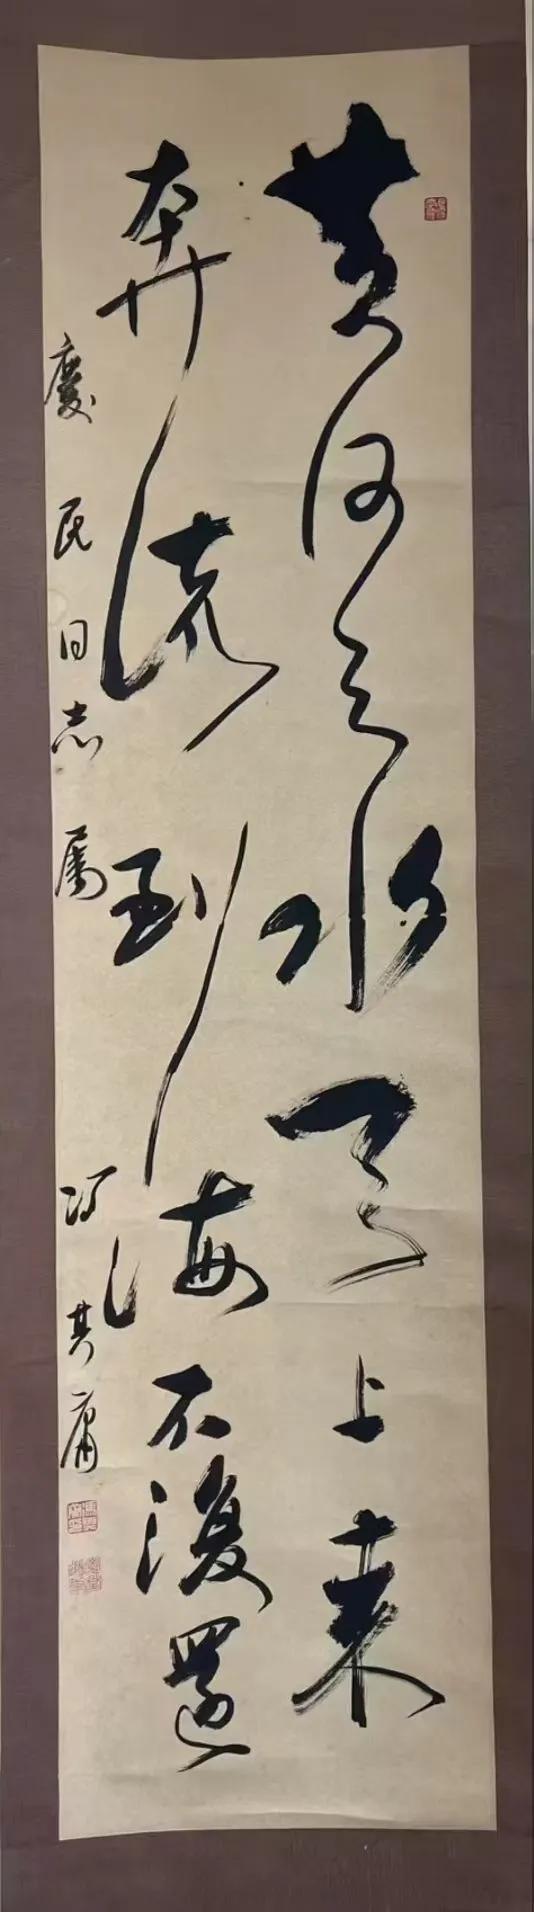 黄河之水天上来
奔流到海不復還
慶民同志属
冯其庸